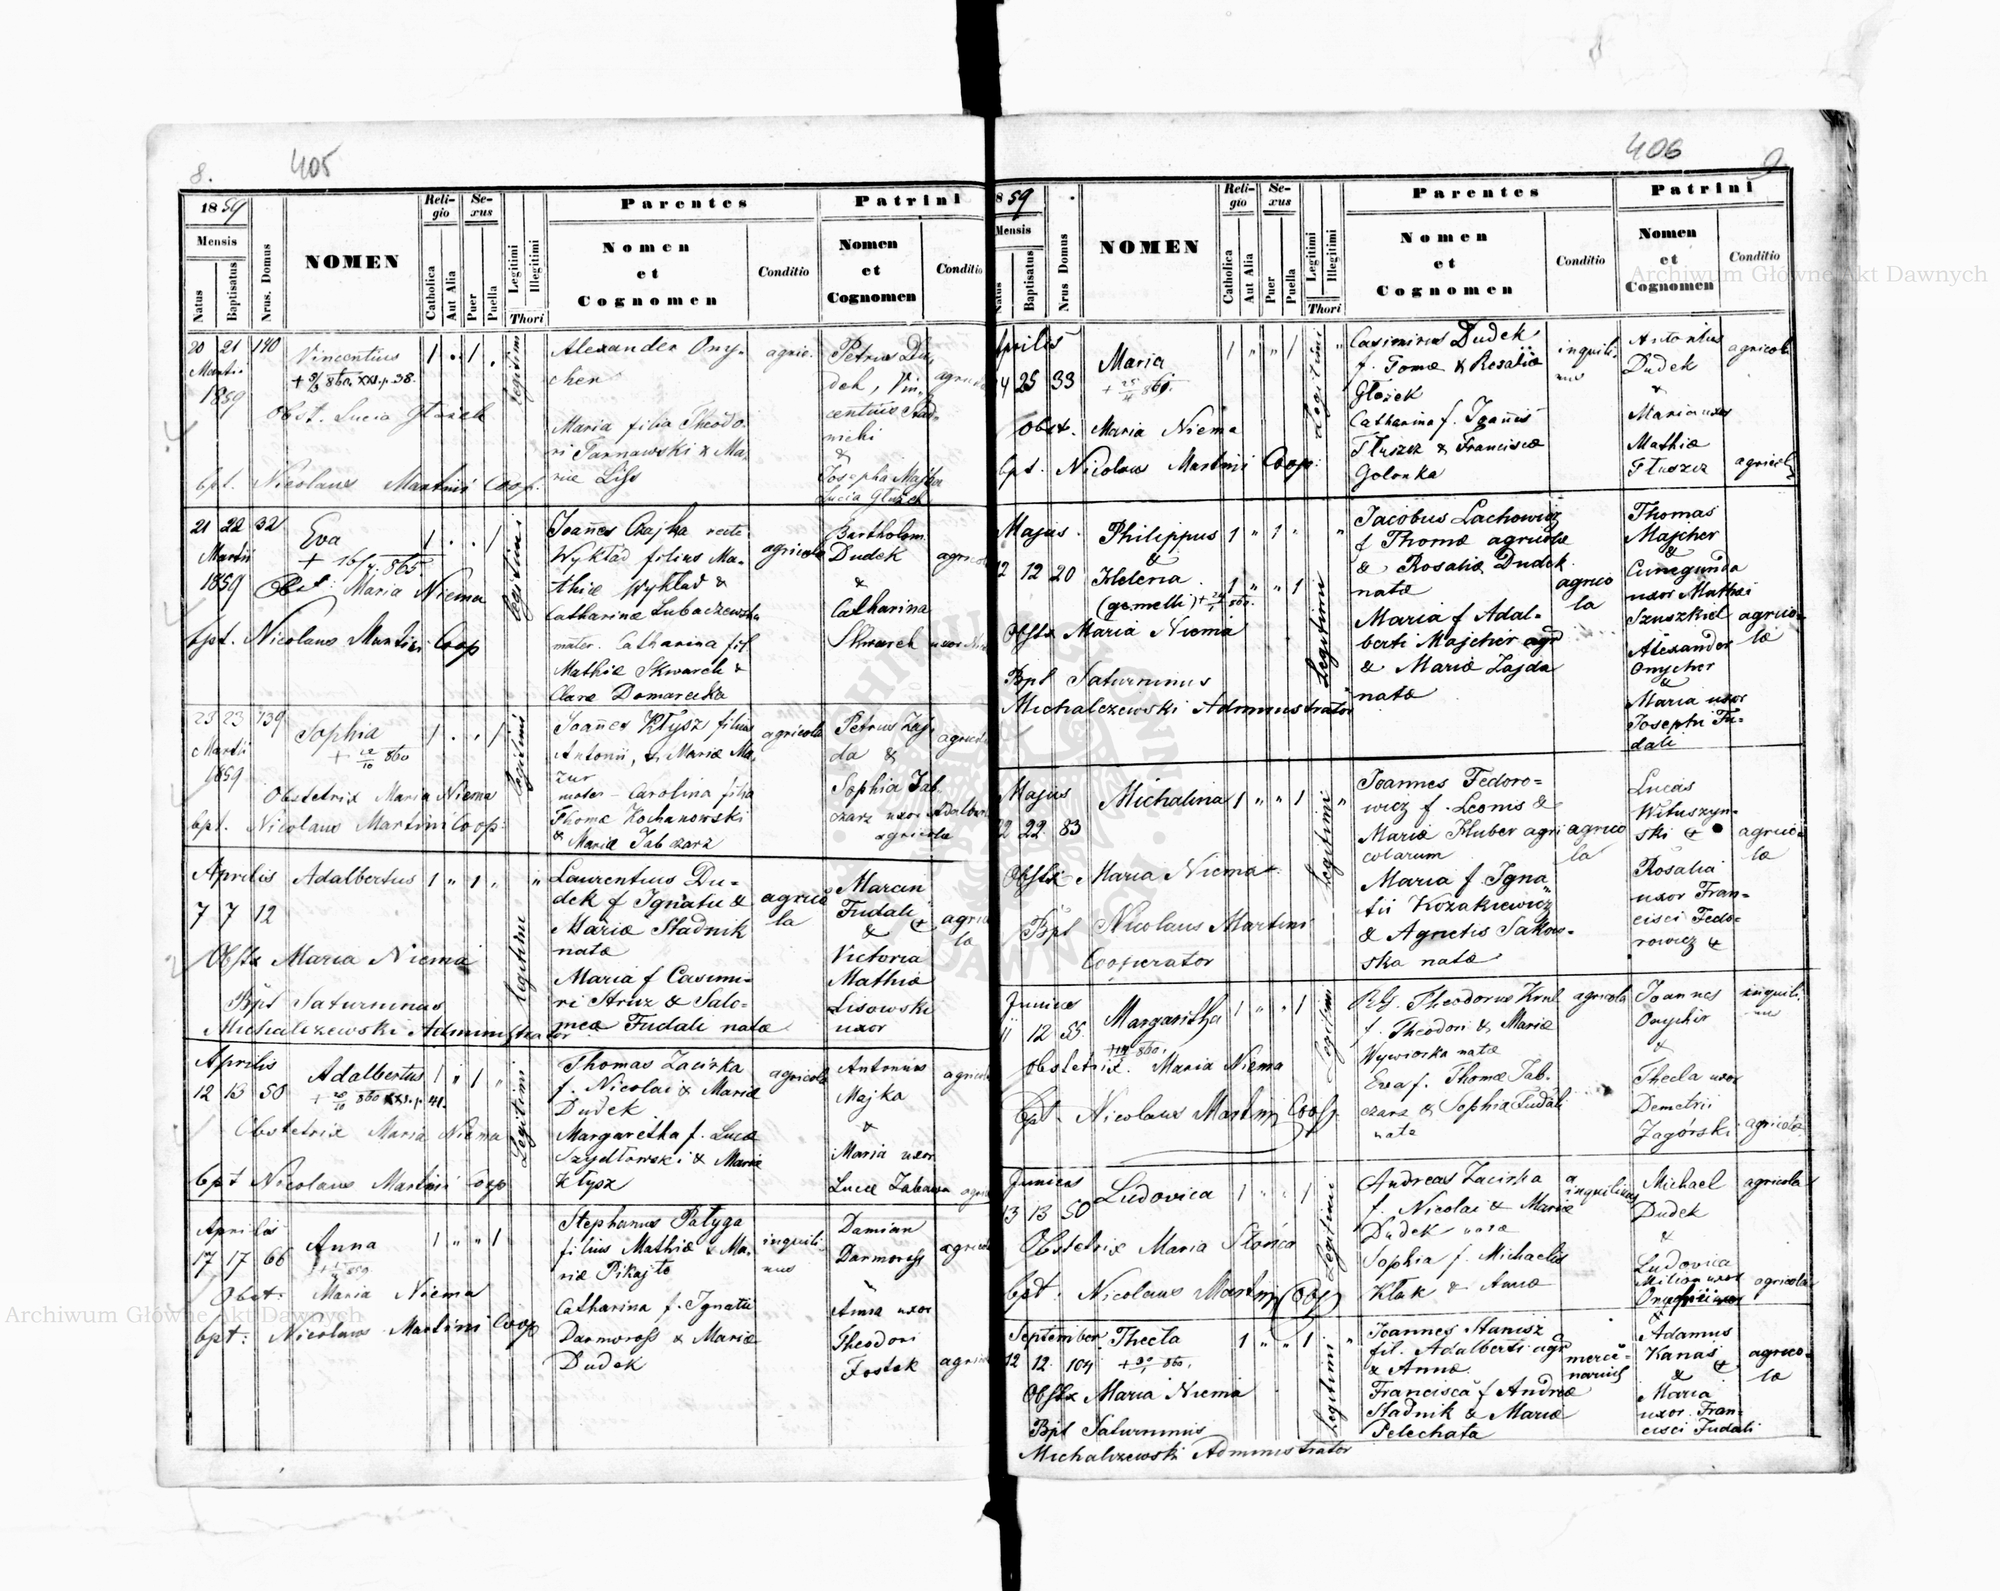 8.
405
1859
Mensis
Natus
Baptisatus
Nrus. Domus
NOMEN
Reli-
gio
Catholica
Aut Alia
Se-
xus
Puer
Puella
Legitimi
Illegitimi
Thori
Parentes
Nomen
et
Cognomen
Conditio
Patrini
Nomen
et
Cognomen
Conditio
20 21 140
Martii
1859
Vincentius
Obst. Lucia Glazek
bpt. Nicolaus Martini Coop.
1 . 1 .
legitimi
Alexander Ony-
cher
Maria filia Theodo-
ri Tarnawski & Ma-
riae Liss
agric.
Petrus Du-
dek, Vin-
centius Stad-
nicki
&
Josepha Majka
Lucia Glazek
21 22 32
Martii
1859
Eva
+ 16/7 865
Obst Maria Niema
bpt. Nicolaus Martini Coop
1 . . 1
legitimi
Joannes Czajka recte
Wykład filius Ma-
thiæ Wykład &
Catharinæ Lubaczewska
mater. Catharina fil
Mathiæ Skwarek &
Claræ Domarecka
agricola
Bartholom.
Dudek
&
Catharina
Skwarek uxor
23 23 139
Martii
1859
Sophia
+ 12/10 860
Obstetrix Maria Niema
bpt. Nicolaus Martini Coop.
1 . . 1
legitimi
Joannes Kłysz filius
Antonii, & Mariæ Ma-
zur
mater – Carolina filia
Thomæ Kochanowski
& Mariæ Jabczarz
agricola
Petrus Zaj-
da &
Sophia Jab-
czarz uxor Adalberti
agricola
Aprilis
7 7 12
Adalbertus
Obstx Maria Niema
Bpt Saturninus
Michalczewski Administrator
1 " 1 "
legitimi
Laurentius Du-
dek f Ignatii &
Mariæ Stadnik
natæ
Maria f Casimi-
ri Struz & Salo-
meæ Fudali natæ
agrico
la
Marcin
Fudali
&
Victoria
Mathiæ
Lisowski
uxor
Aprilis
12 13 50
Adalbertus
Obstetrix Maria Niema
bpt Nicolaus Martini Coop
1 " 1 "
Legitimi
Thomas Zacirka
f. Nicolai & Mariæ
Dudek
Margaretha f. Lucæ
Szydłowski & Mariæ
Kłysz
agricola
Antonius
Majka
&
Maria uxor
Lucæ
Aprilis
17 17 66
Anna
Obst: Maria Niema
bpt: Nicolaus Martini Coop
1 " " 1
Stephanus Pałyga
filius Mathiæ & Ma-
riæ Pikajto
Catharina f. Ignatii
Darmoross & Mariæ
Dudek
inquili-
nus
Damian
Darmoross
Anna uxor
Theodori
Fostek
406
9.
59
Mensis
Natus
Baptisatus
Nrus Domus
NOMEN
Reli-
gio
Catholica
Aut Alia
Se-
xus
Puer
Puella
Legitimi
Illegitimi
Thori
Parentes
Nomen
et
Cognomen
Conditio
Patrini
Nomen
et
Cognomen
Conditio
Aprilis
25 33
Maria
Obst. Maria Niema
bpt. Nicolaus Martini Coop.
1 " " 1
Legitimi
Casimirus Dudek
f. Tomæ & Rosaliæ
Glożek
Catharina f. Joannis
Tłuszcz & Franciscæ
Golonka
inquili-
nus
Antonius
Dudek
&
Maria uxor
Mathiæ
Tłuszcz
agricola
agricola
Majus
12 12 20
Philippus
&
Helena
(gemelli)
Obstx Maria Niema
Bpt Saturninus
Michalczewski Administrator
1 " 1 "
1 " " 1
Legitimi
Jacobus Lachowicz
f Thomæ agricolæ
& Rosaliæ Dudek
natæ
Maria f Adal-
berti Majcher agr
& Mariæ Zajda
natæ
agrico
la
Thomas
Majcher
&
Cunegunda
uxor Mathæi
Szuszkiel
Alexander
Onycher
&
Maria uxor
Josephi Fu-
dali
agrico-
læ
Majus
22 22 83
Michalina
Obstx Maria Niema
Bpt Nicolaus Martini
Cooperator
1 " " 1
legitimi
Joannes Fedoro-
wicz f. Leonis &
Mariæ Huber agri
colarum
Maria f. Igna
tii Kozakiewicz
& Agnetis Sakow-
ska natæ
agrico
la
Lucas
Wituszyn-
ski &
Rosalia
uxor Fran-
cisci Fedo-
rowicz
agrico-
læ
Junius
11 12 55
Margaritha
Obstetrix. Maria Niema
bpt. Nicolaus Martini Coop.
1 " " 1
Legitimi
RG. Theodorus Krul
f. Theodori & Mariæ
Wywiorka natæ
Eva f. Thomæ Jab-
czarz & Sophiæ Fudali
natæ
agricola
Joannes
Onycher
&
Thecla uxor
Demetrii
Zagórski
inquili-
nus
agricola
Junius
13 13 50
Ludovica
Obstetrix Maria Słonica
bpt. Nicolaus Martini Coop
1 " " 1
Legitimi
Andreas Zacirka
f. Nicolai & Mariæ
Dudek natæ
Sophia f. Michaelis
Kłak & Annæ
inquilinus
Michael
Dudek
&
Ludovica
agricola
agricola
September
12 12. 104
Thecla
Obstx Maria Niema
Bpt Saturninus
Michalczewski Administrator
1 " " 1 "
Legitimi
Joannes Stanisz
fil. Adalberti agr
& Annæ
Francisca f Andreæ
Stadnik & Mariæ
Pelechata
merce-
narius
Adamus
Kanas
&
Maria
uxor Fran-
cisci Fudali
agrico-
læ
Archiwum Główne Akt Dawnych
Archiwum Główne Akt Dawnych